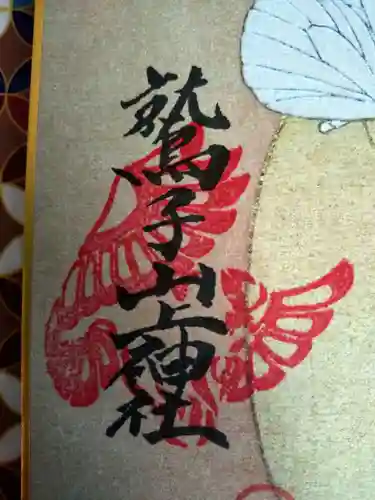 鷲子山上神社